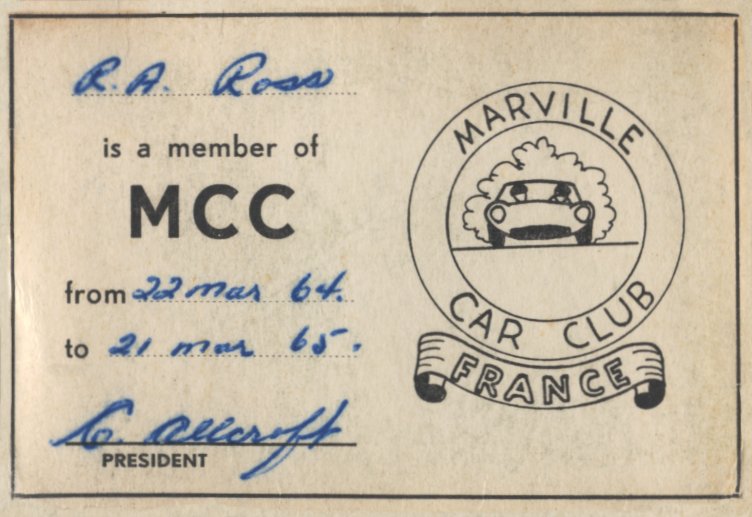 R.A. Ross
is a member of
MCC
from 22 mar 64.
to 21 mar 65.
PRESIDENT
MARVILLE
CAR CLUB
FRANCE